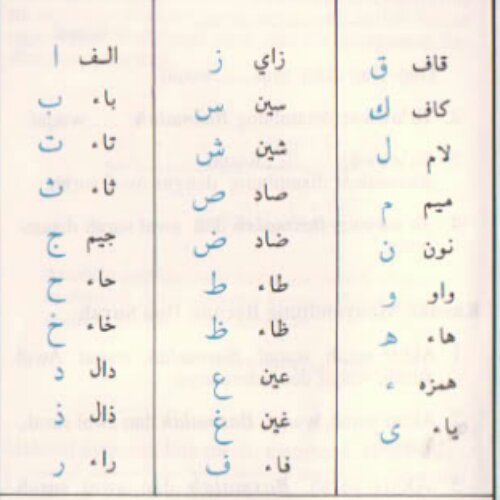 الف ا
باء ب
تاء ت
ثاء ث
جيم ج
حاء ح
خاء خ
دال د
ذال ذ
راء ر
زاي ز
سين س
شين ش
صاد ص
ضاد ض
طاء ط
ظاء ظ
عين ع
غين غ
فاء ف
قاف ق
كاف ك
لام ل
ميم م
نون ن
واو و
هاء ه
همزه ء
ياء ى